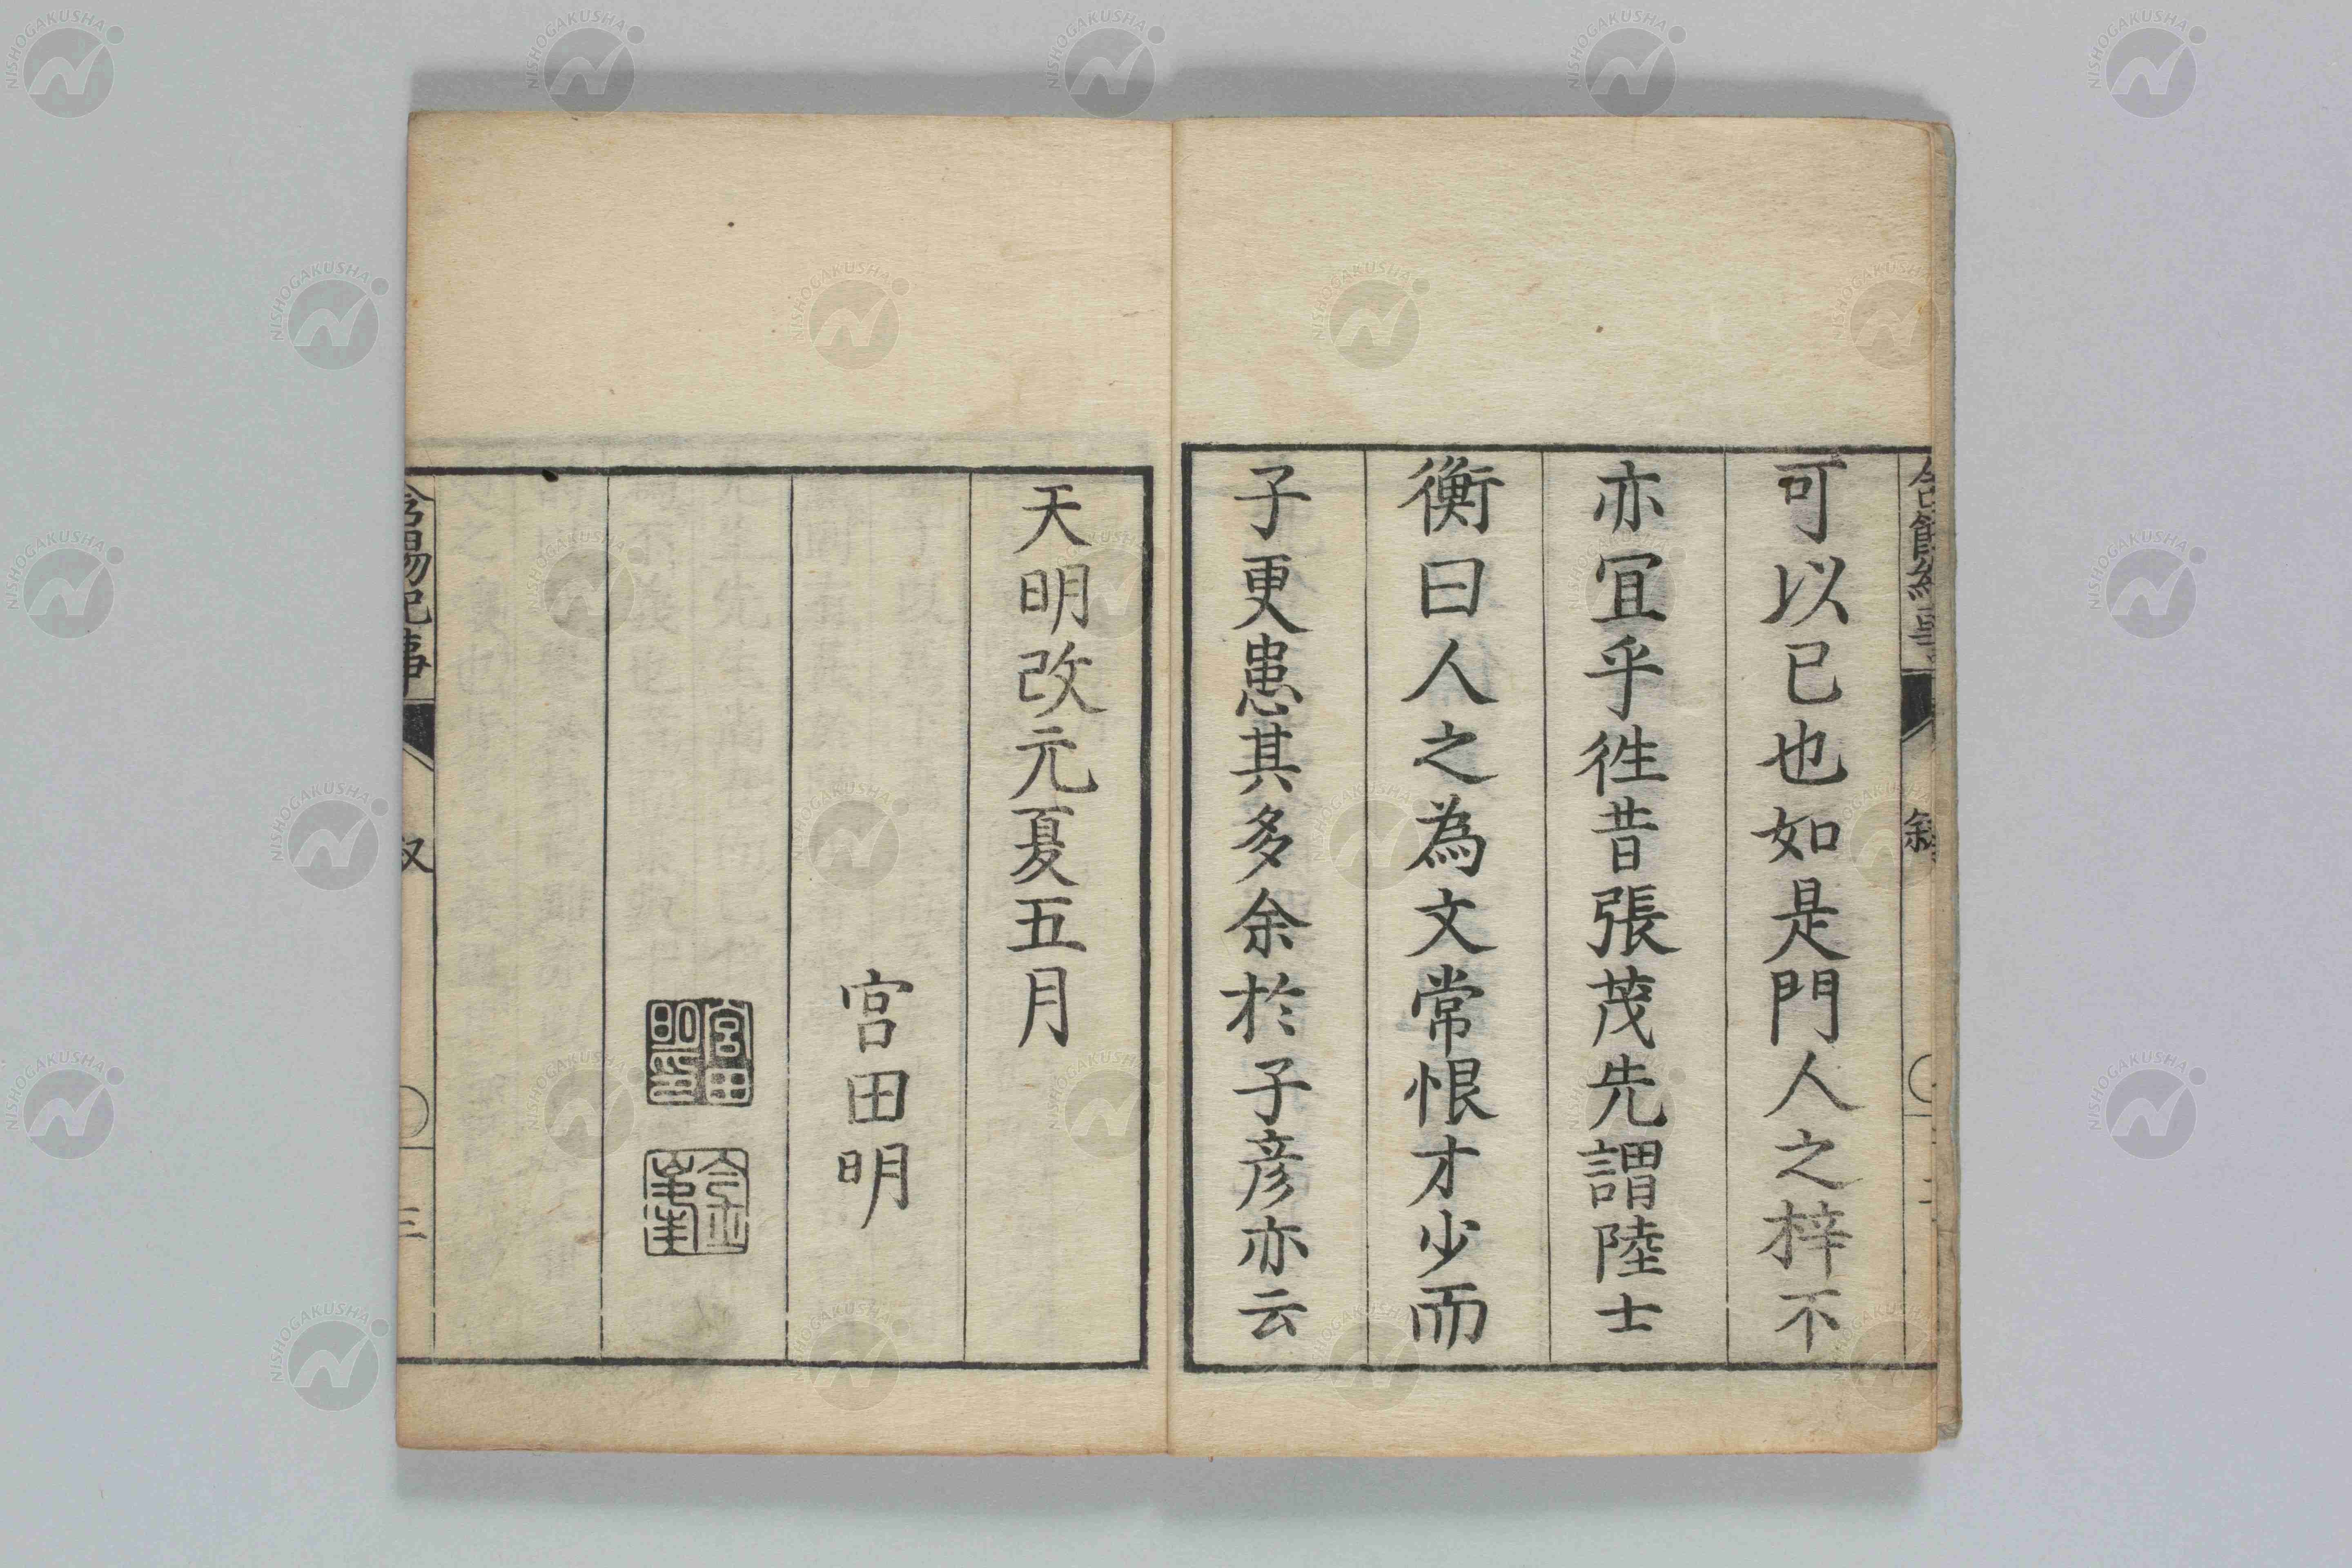 可以已也如是門人之梓不
亦冝乎徃昔張茂先謂陸士
衡曰人之為文常恨才少而
子更患其多余於子彦亦云
天明改元夏五月
宮田明
宮田
明印
三
NISHOGAKUSHA